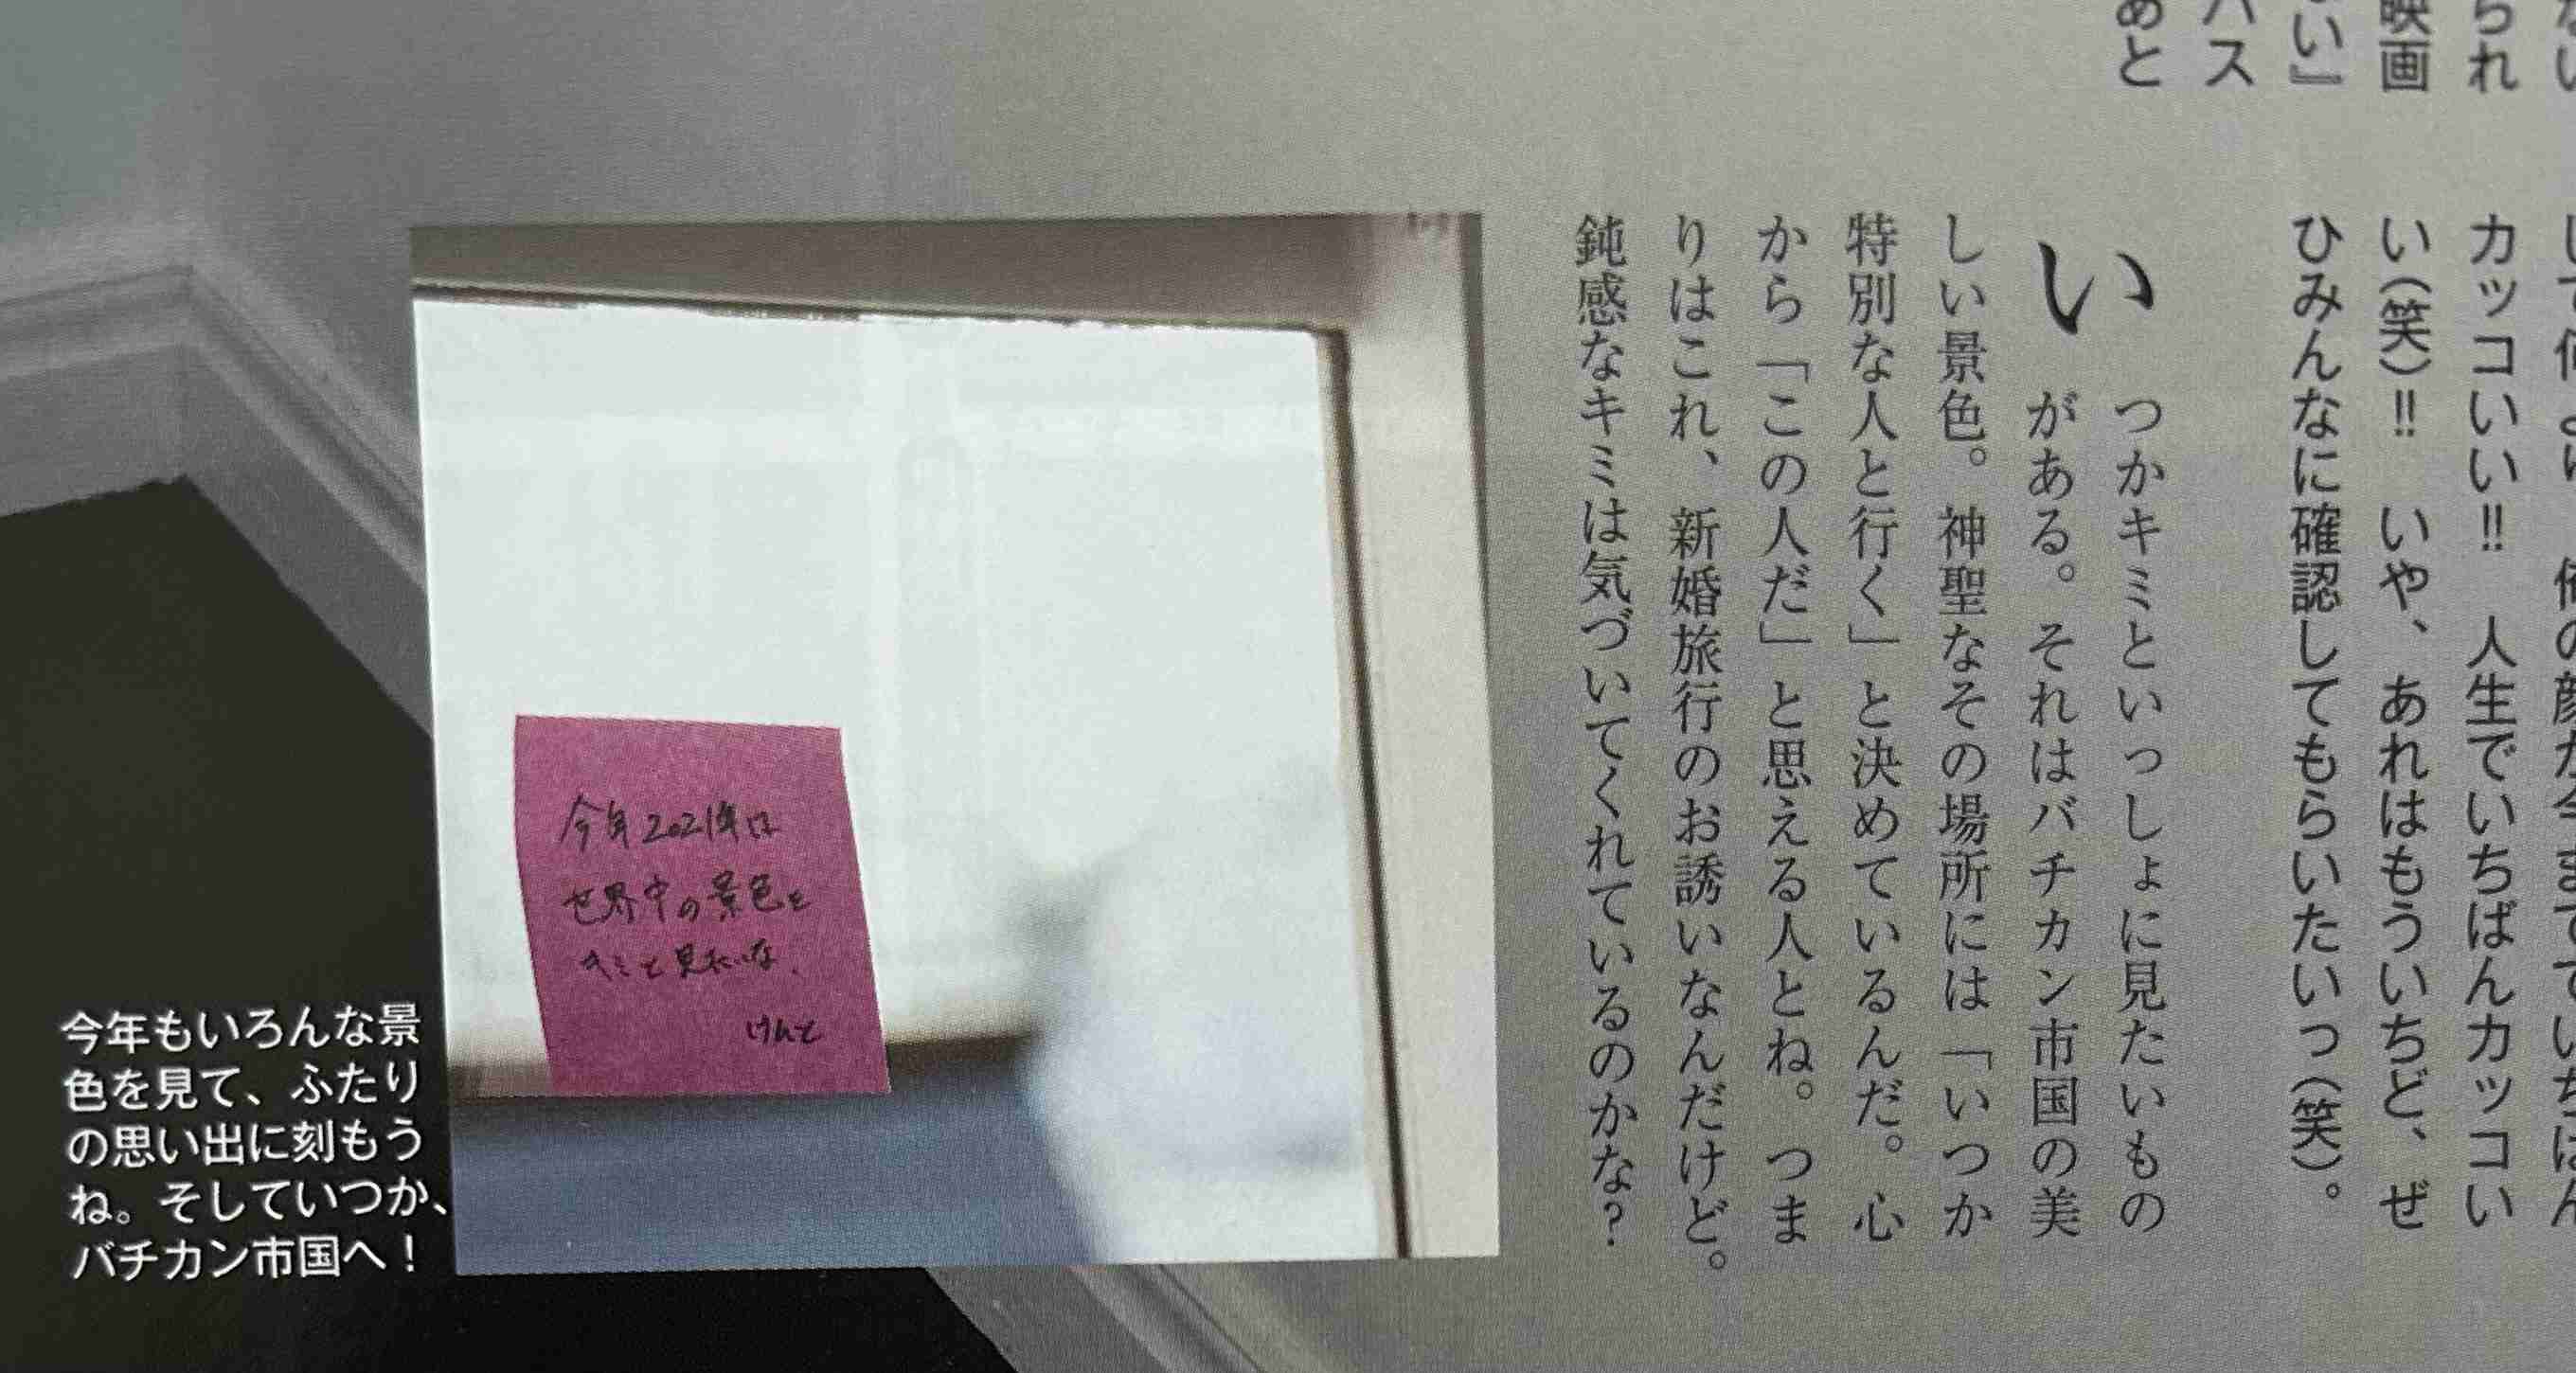 られ
映画
い』
あと
カッコいい‼ 人生でいちばんカッコい
い(笑)‼ いや、あれはもういちど、ぜ
ひみんなに確認してもらいたいっ(笑)。
いつかキミといっしょに見たいもの
がある。それはバチカン市国の美
しい景色。神聖なその場所には「いつか
特別な人と行く」と決めているんだ。心
から「この人だ」と思える人とね。つま
りはこれ、新婚旅行のお誘いなんだけど。
鈍感なキミは気づいてくれているのかな?
今年2021年は
世界中の景色を
キミと見たいな.
けんと
今年もいろんな景
色を見て、ふたり
の思い出に刻もう
ね。そしていつか、
バチカン市国へ!